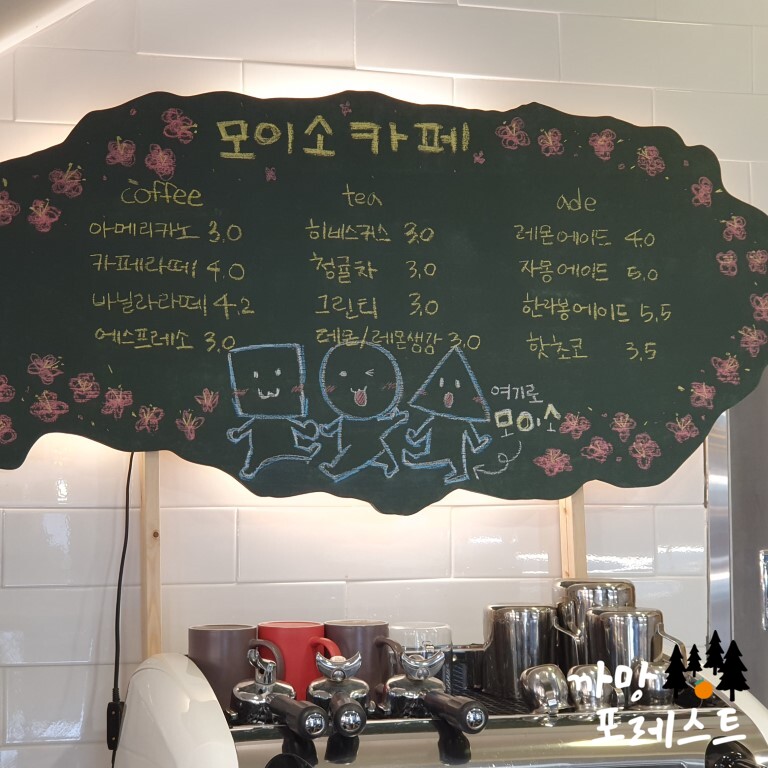 모이소 카페
coffee
아메리카노 3.0
카페라떼 4.0
바닐라라떼 4.2
에스프레소 3.0
tea
히비스커스 3.0
청귤차 3.0
그린티 3.0
레몬/레몬생강 3.0
ade
레몬에이드 4.0
자몽에이드 5.0
한라봉에이드 5.5
핫초코 3.5
여기로
모이소
까망
포레스트